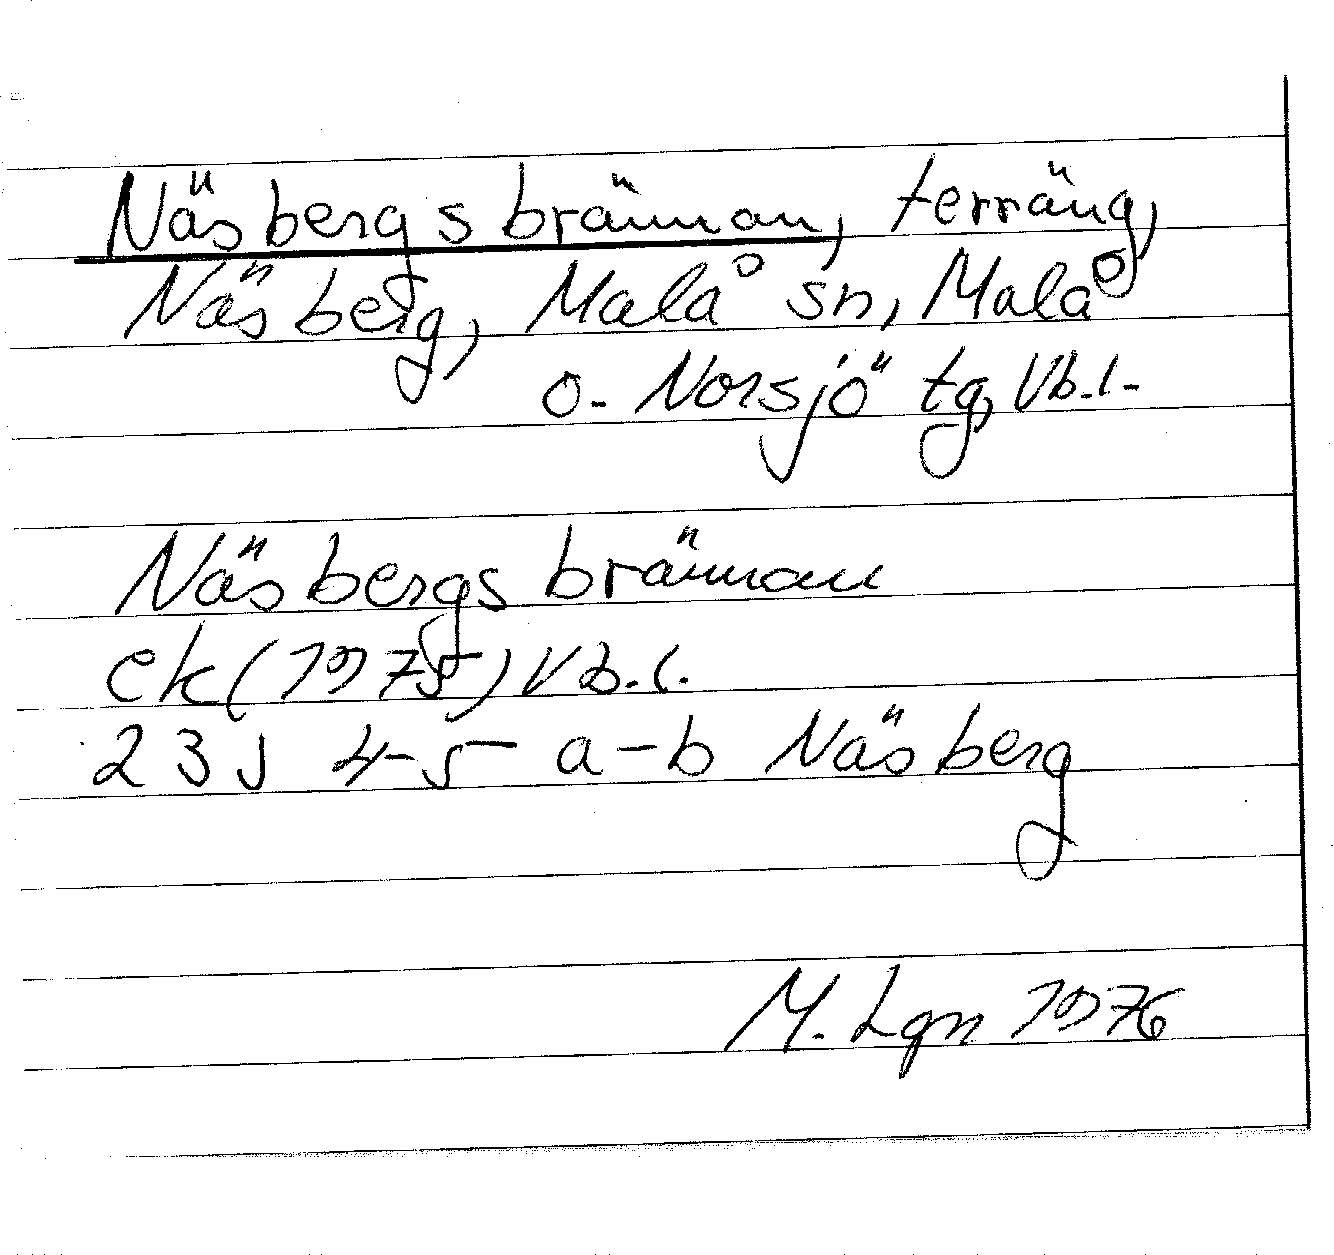 Näsbergsbrännan, terräng,
Näsberg, Malå sn, Malå
o. Norsjö tg, Vb.l.
Näsbergsbrännan
ek (1975) Vb.l.
23J 4-5 a-b Näsberg
M. Lgn 1976